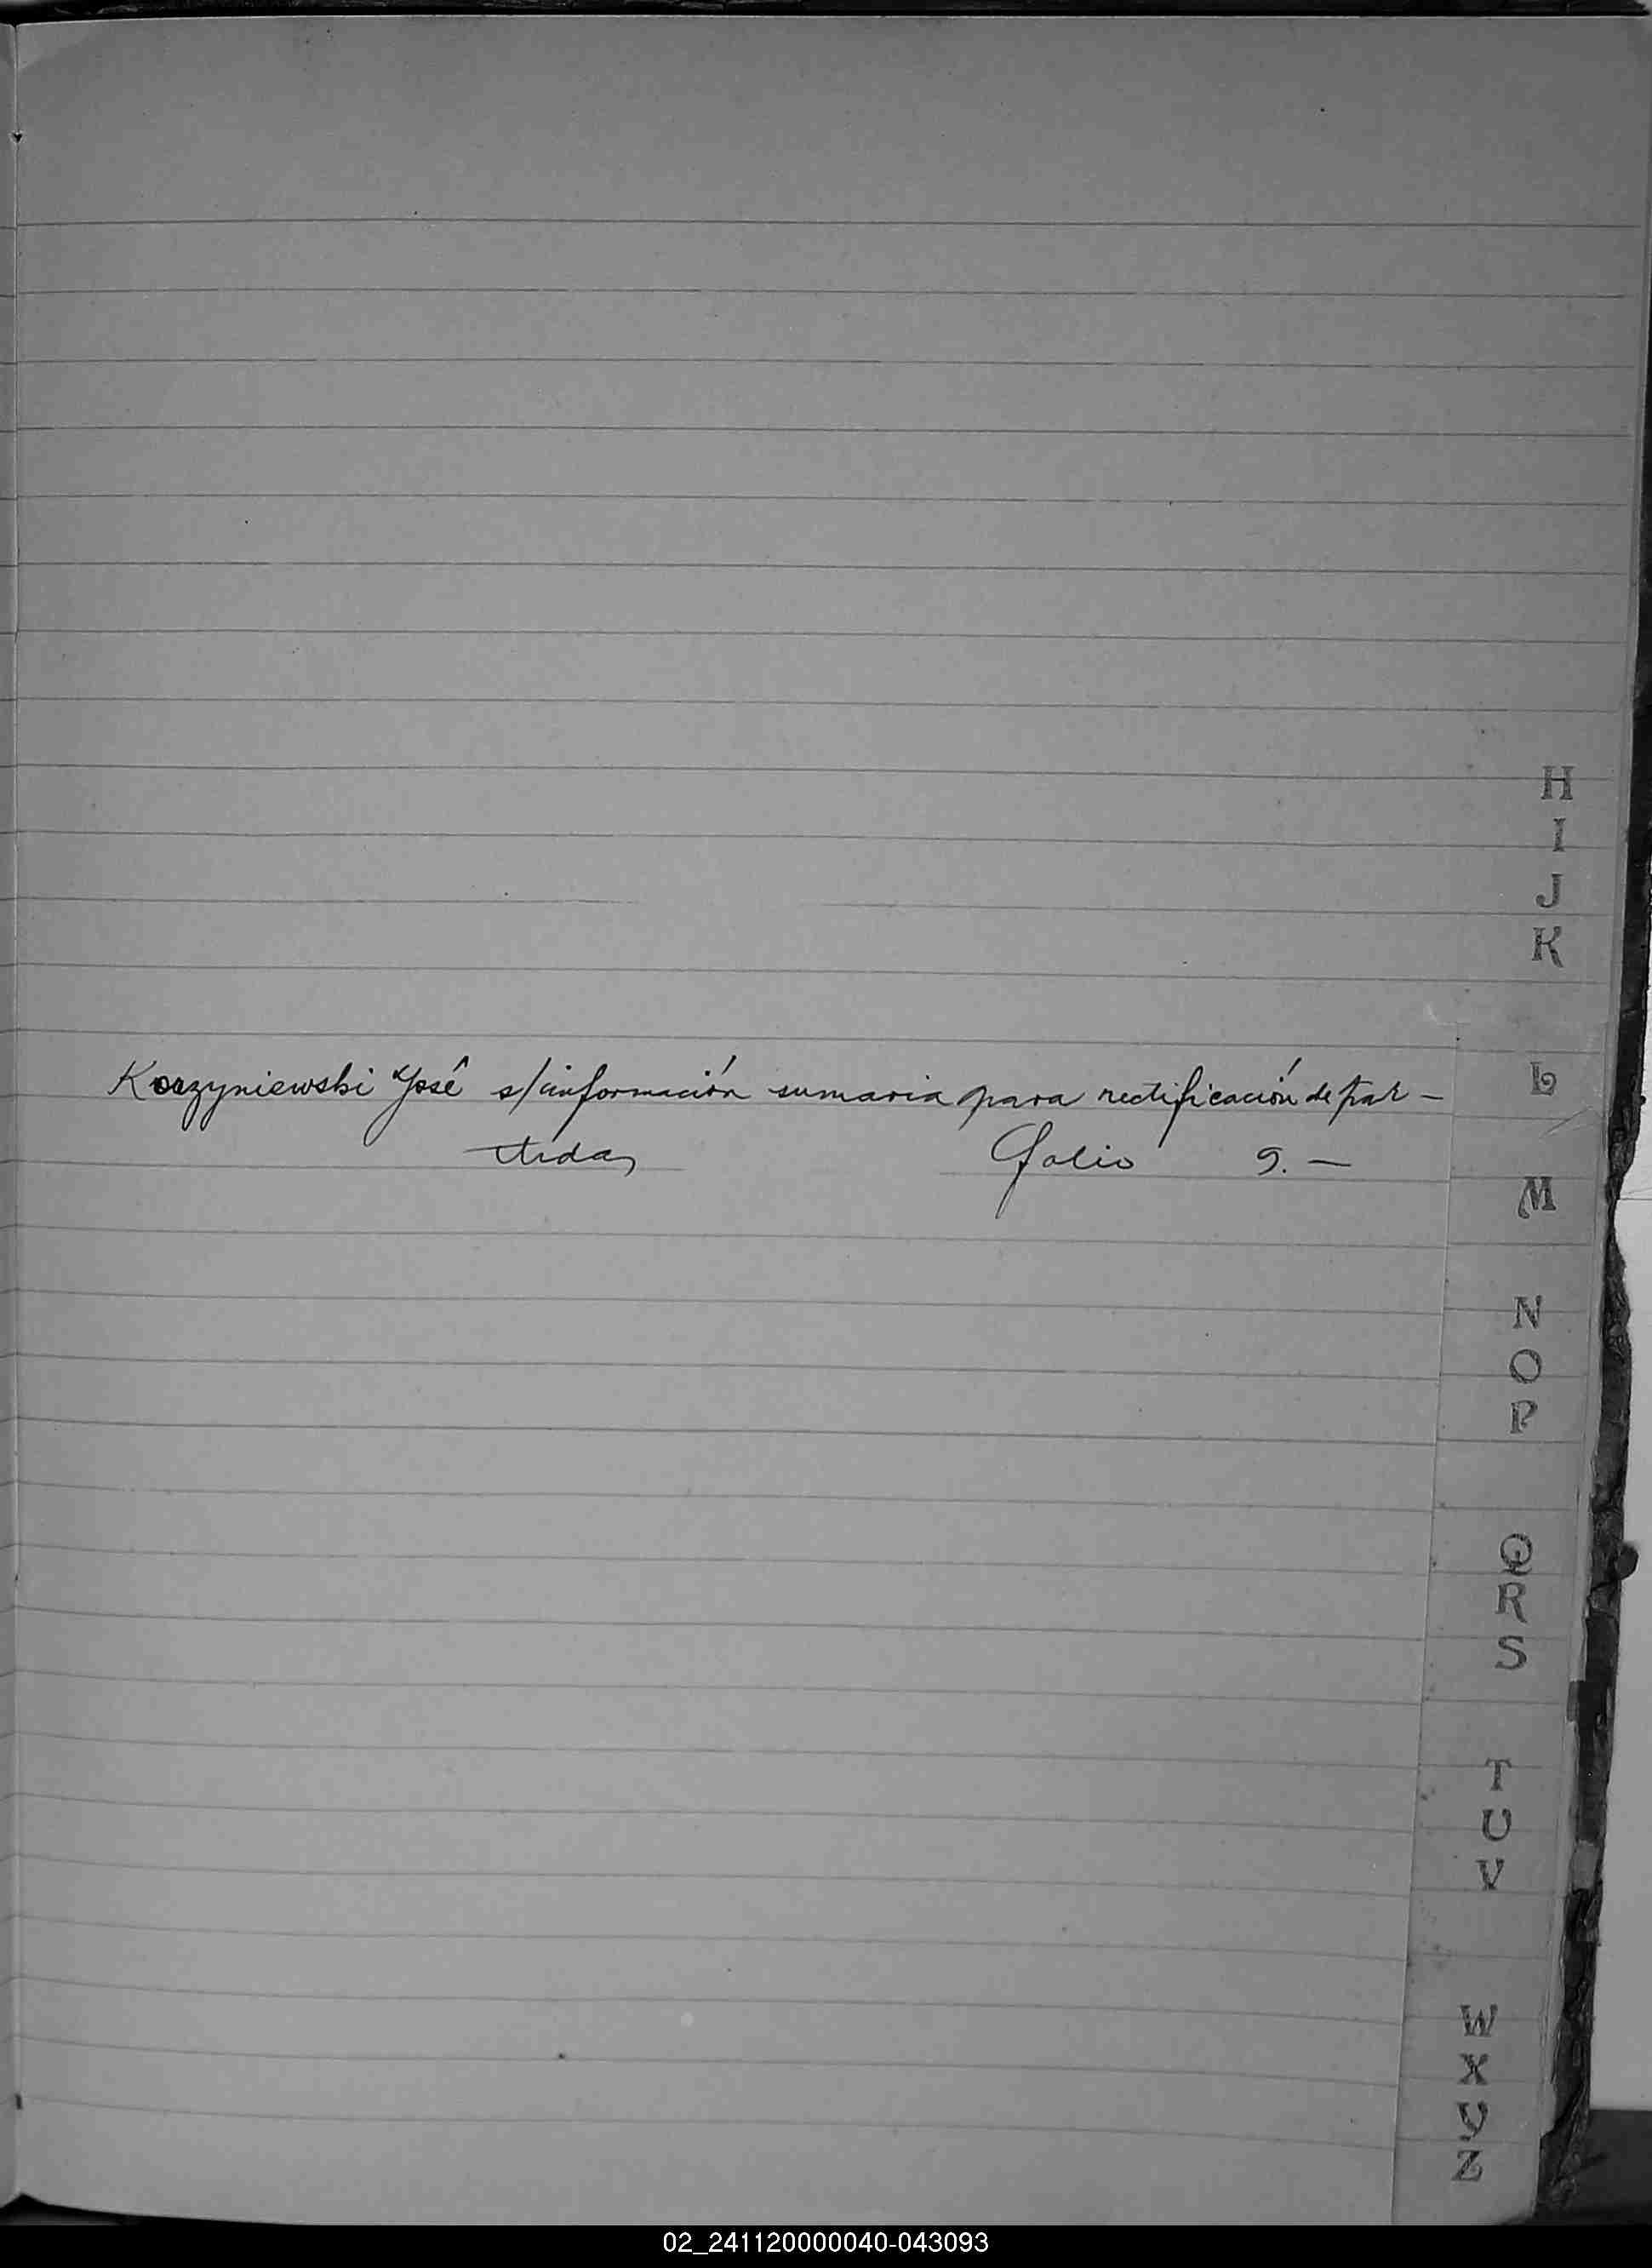 H
I
J
K
Korzyniewski José s/información sumaria para rectificación de par-
tidas Folio 9.-
L
M
N
O
P
Q
R
S
T
U
V
W
X
Y
Z
02_241120000040-043093